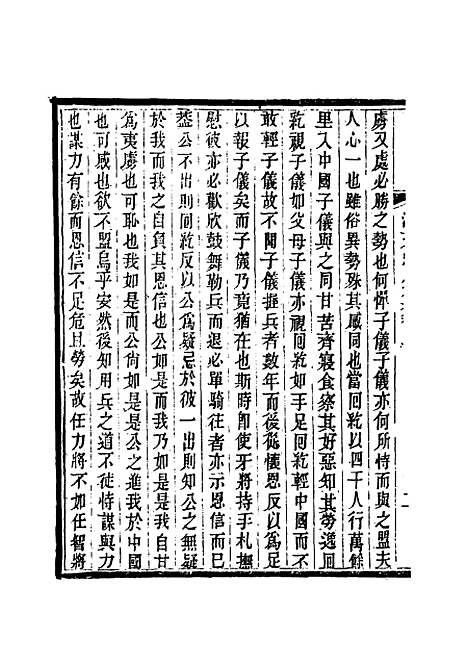 虜又處必勝之勢也何憚子儀子儀亦何所恃而與之盟夫
人心一也雖俗異勢殊其感同也當回紇以四千人行萬餘
里入中國子儀與之同甘苦齊寢食察其好惡知其勞逸囘
紇視子儀如父母子儀亦視囘紇如手足囘紇輕中國而不
敢輕子儀故不聞子儀握兵者數年而後從懷恩反以爲足
以報子儀矣而子儀乃竟猶在也斯時卽使牙將持手札撫
慰彼亦必歡欣鼓舞勒兵而退必單騎往者亦示恩信而已
葢公不出則囘紇反以公爲疑忌於彼一出則知公之無疑
於我而我之自負其恩信於公如是而我乃如是是我自甘
爲夷虜也可恥也我如是公尚如是是公之進我於中國
也可感也欲不盟烏乎安然後知用兵之道不徒恃謀與力
也謀力有餘而恩信不足危且勞矣故任力將不如任智將
二